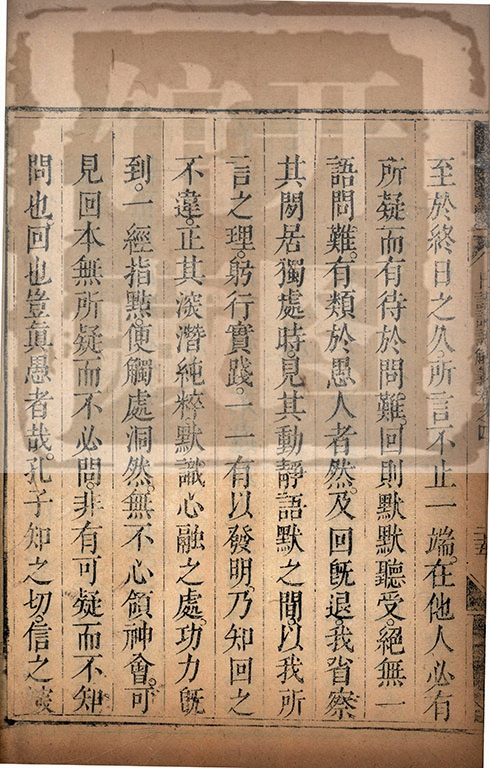 至於終日之久。所言不止一端。在他人必有
所疑而有待於問難。回則默默聽受。絕無一
語問難。有類於愚人者然。及回旣退。我省察
其閒居獨處時。見其動靜語默之間。以我所
言之理。躬行實踐。一一有以發明。乃知回之
不違。正其深潛純粹。默識心融之處。功力旣
到。一經指點。便觸處洞然。無不心領神會。可
見回本無所疑而不必問。非有可疑而不知
問也。回也豈眞愚者哉。孔子知之切。信之深